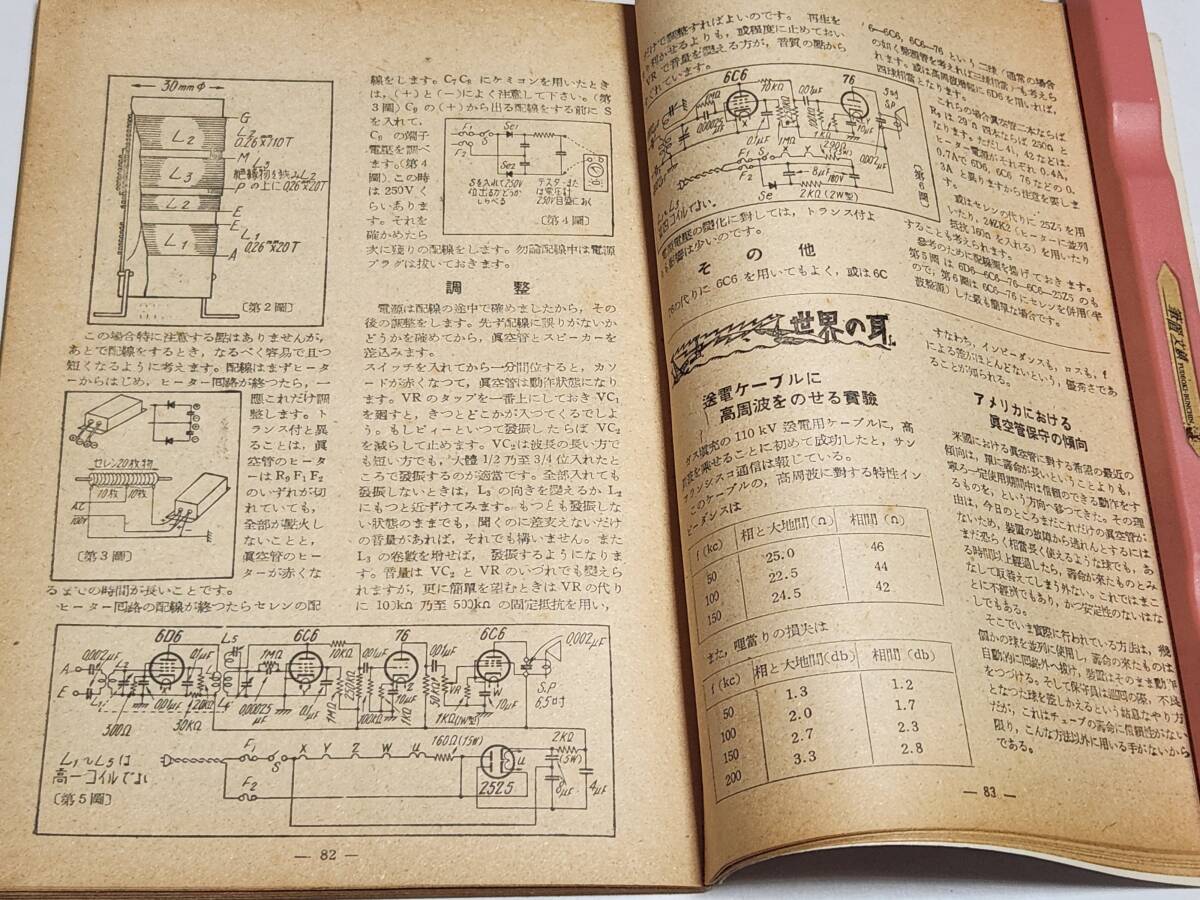 30mmΦ
G
L₂
0.26×110T
M L₃
絶縁物を挾みL₂
Pの上に0.26 20T
E
E
L₁
0.26×20T
A
L₂
L₃
L₂
L₁
〔第2圖〕
この場合特に注意する點はありませんが,
あとで配線をするとき, なるべく容易で且つ
短くなるように考えます。配線はまずヒータ
ーからはじめ, ヒーター回路が終つたら, 一
應これだけ調
整します。ト
ランス付と異
ることは, 眞
空管のヒータ
ーは R₉ F₁ F₂
のいずれが切
れていても,
全部が點火し
ないことと,
眞空管のヒー
ターが赤くな
るまでの時間が長いことです。
ヒーター回路の配線が終つたらセレンの配
セレン20枚物
10枚 10枚
A.C.
100V
〔第3圖〕
線をします。C₇C₈ にケミコンを用いたとき
は, (+) と (−) によく注意して下さい。(第
3圖) C₈ の (+) から出る配線をする前に S
を入れて,
C₈ の端子
電壓を調べ
ます。(第4
圖) この時
は 250V く
らいありま
す。それを
確かめたら
次に殘りの配線をします。勿論配線中は電源
プラグは拔いておきます。
F₁
S
F₂
Se1
Se2
Sを入れて250V
位出るかどうか
しらべる
テスターまた
は電圧計
250V目盛におく
〔第4圖〕
調整
電源は配線の途中で確めましたから, その
後の調整をします。先ず配線に誤りがないか
どうかを確めてから, 眞空管とスピーカーを
差込みます。
スイッチを入れてから一分間位すると, カソ
ードが赤くなつて, 眞空管は動作状態になり
ます。VR のタップを一番上にしておき VC₁
を廻すと, きつとどこかが入つてくるでしよ
う。もしピィーといつて發振したらば VC₂
を減らして止めます。VC₂ は波長の長い方で
も短い方でも, 大體 1/2 乃至 3/4 位入れたと
ころで發振するのが適當です。全部入れても
發振しないときは, L₃ の向きを變えるか L₂
にもつと近ずけてみます。もつとも發振しな
い状態のままでも, 聞くのに差支えないだけ
の音量があれば, それでも構いません。また
L₃ の卷數を增せば, 發振するようになりま
す。音量は VC₂ と VR のいづれでも變えら
れますが, 更に簡單を望むときは VR の代り
に 100kΩ 乃至 500kΩ の固定抵抗を用い,
6D6
6C6
76
6C6
0.002μF
A
E
300Ω
0.01μF
30KΩ
L5
0.1μF
1MΩ
0.00025μF
10KΩ
1MΩ
250KΩ
0.01μF
100KΩ
10μF
1KΩ
0.01μF
50KΩ
VR
1KΩ(1W型)
10μF
0.002μF
S.P
6.5吋
L₁〜L5は
高一コイルでよい
〔第5圖〕
F₁
S
F₂
X Y Z W U
160Ω(15W)
25Z5
2KΩ
(5W)
8μF
4μF
— 82 —
だけで調整すればよいのです。再生を
利かせるよりも, 或程度に止めておい
VR で音量を變える方が, 音質の點から
れています。
6C6
76
1MΩ
0.00025μF
10KΩ
0.01μF
0.1μF
1MΩ
1KΩ
10μF
S.P
0.002μF
F₁
S
F₂
X
Y
8μF
180F
Se
2KΩ(2W型)
〔第6圖〕
コイルでよい。
電源電壓の變化に對しては, トランス付よ
り影響は少いのです。
その他
76の代りに 6C6 を用いてもよく, 或は 6C
6—6C6, 6C6—76 という二球 (通常の場合
の如く整流管を考えれば三球相當) も考えら
れます。或は高周波增幅に 6D6 を用いれば,
四球相當となります。
これらの場合眞空管二本ならば
R₉ は 29Ω 四本ならば 250Ω と
なります。ただし 41, 42 などは
ヒーター電流がそれぞれ 0.4A,
0.7A で 6D6, 6C6, 76 などの 0.
3A と異りますから注意を要しま
す。
或はセレンの代りに 25Z5 を用
いたり, 24ZK2 (ヒーターに並列
抵抗 160Ω を入れる) を用いたり
することも考えられます。
參考のために配線圖を揭げておきます。
第5圖は 6D6—6C6—76—6C6—25Z5 のも
ので, 第6圖は 6C6—76 にセレンを併用(半
波整流) した最も簡單な場合です。
世界の耳
送電ケーブルに
高周波をのせる實驗
ガス填充の 110 kV 送電用ケーブルに, 高
周波を乘せることに初めて成功したと, サン
フランシスコ通信は報じている。
このケーブルの, 高周波に對する特性イン
ピーダンスは
f (kc) 相と大地間 (Ω) 相間 (Ω)
50 25.0 46
100 22.5 44
150 24.5 42
また, 哩當りの損失は
f (kc) 相と大地間 (db) 相間 (db)
50 1.3 1.2
100 2.0 1.7
150 2.7 2.3
200 3.3 2.8
すなわち, インピーダンスも, ロスも, f
による差がほとんどないという, 優秀さであ
ることが知られる。
アメリカにおける
眞空管保守の傾向
米國における眞空管に對する希望の最近の
傾向は, 單に壽命が長いということよりも,
寧ろ一定使用期間中は信頼のできる動作をす
るものを, という方向へ移つてきた。その理
由は, 今日のところまだこれだけの眞空管が
ないため, 裝置の故障から逃れんとするには
まだ恐らく相當長く使えるような球でも, あ
る時間以上經過したら, 壽命が來たものとみ
なして取替えてしまう外ない。これではまこ
とに不經濟でもあり, かつ安定性のないはな
しでもある。
そこでいま實際に行われている方法は, 幾
個かの球を並列に使用し, 壽命の來たものは
自動的に回路外へ拔け, 裝置はそのまま動作
をつづける。そして保守員は巡回の際, 不良
となつた球を差しかえるという結局なやり方
だが, これはチューブの壽命に信頼性がない
限り, こんな方法以外に用いる手がないから
である。
— 83 —